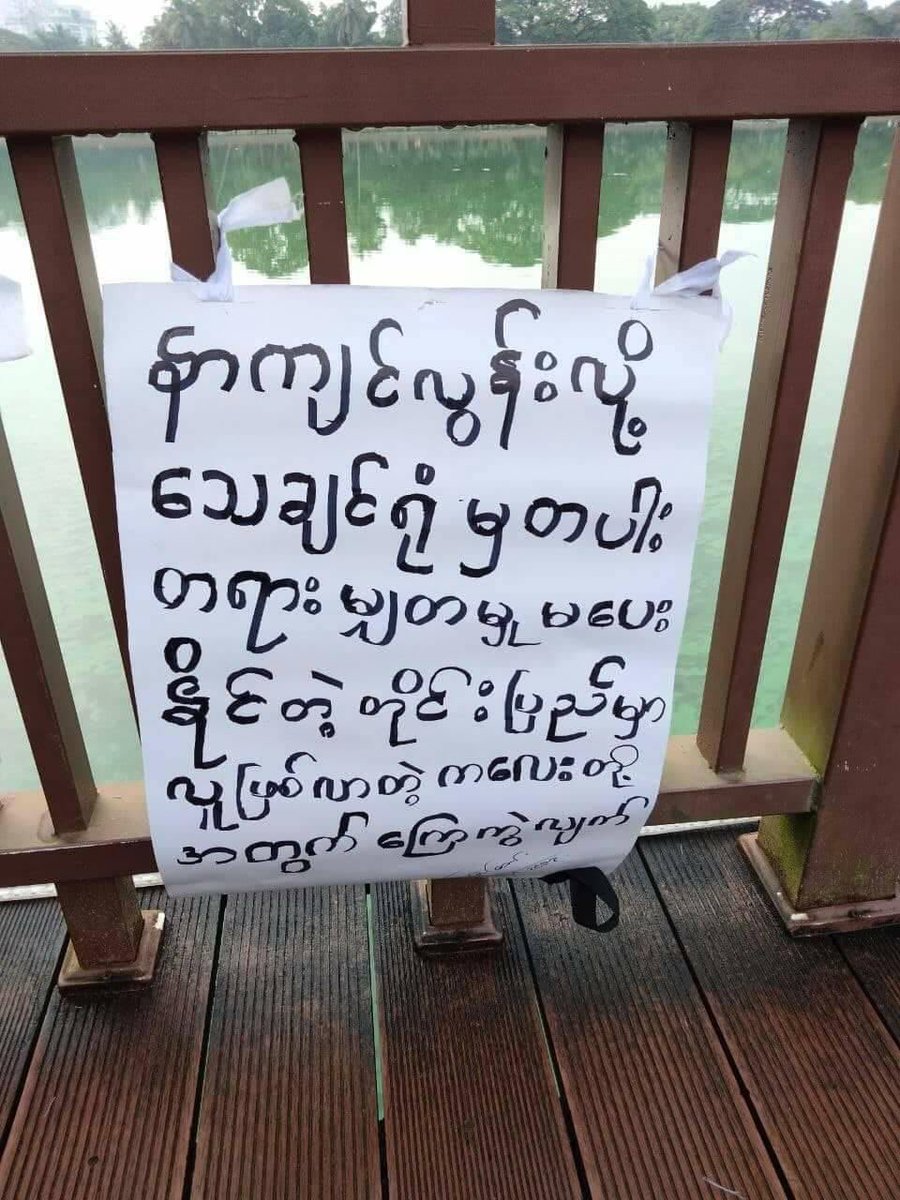 နာကျင်လွန်းလို့
သေချင်ရုံ မှတပါး
တရား မျှတမှု မပေး
နိုင်တဲ့ တိုင်းပြည်မှာ
လူဖြစ်လာတဲ့ ကလေးတို့
အတွက် ကြေကွဲလျက်